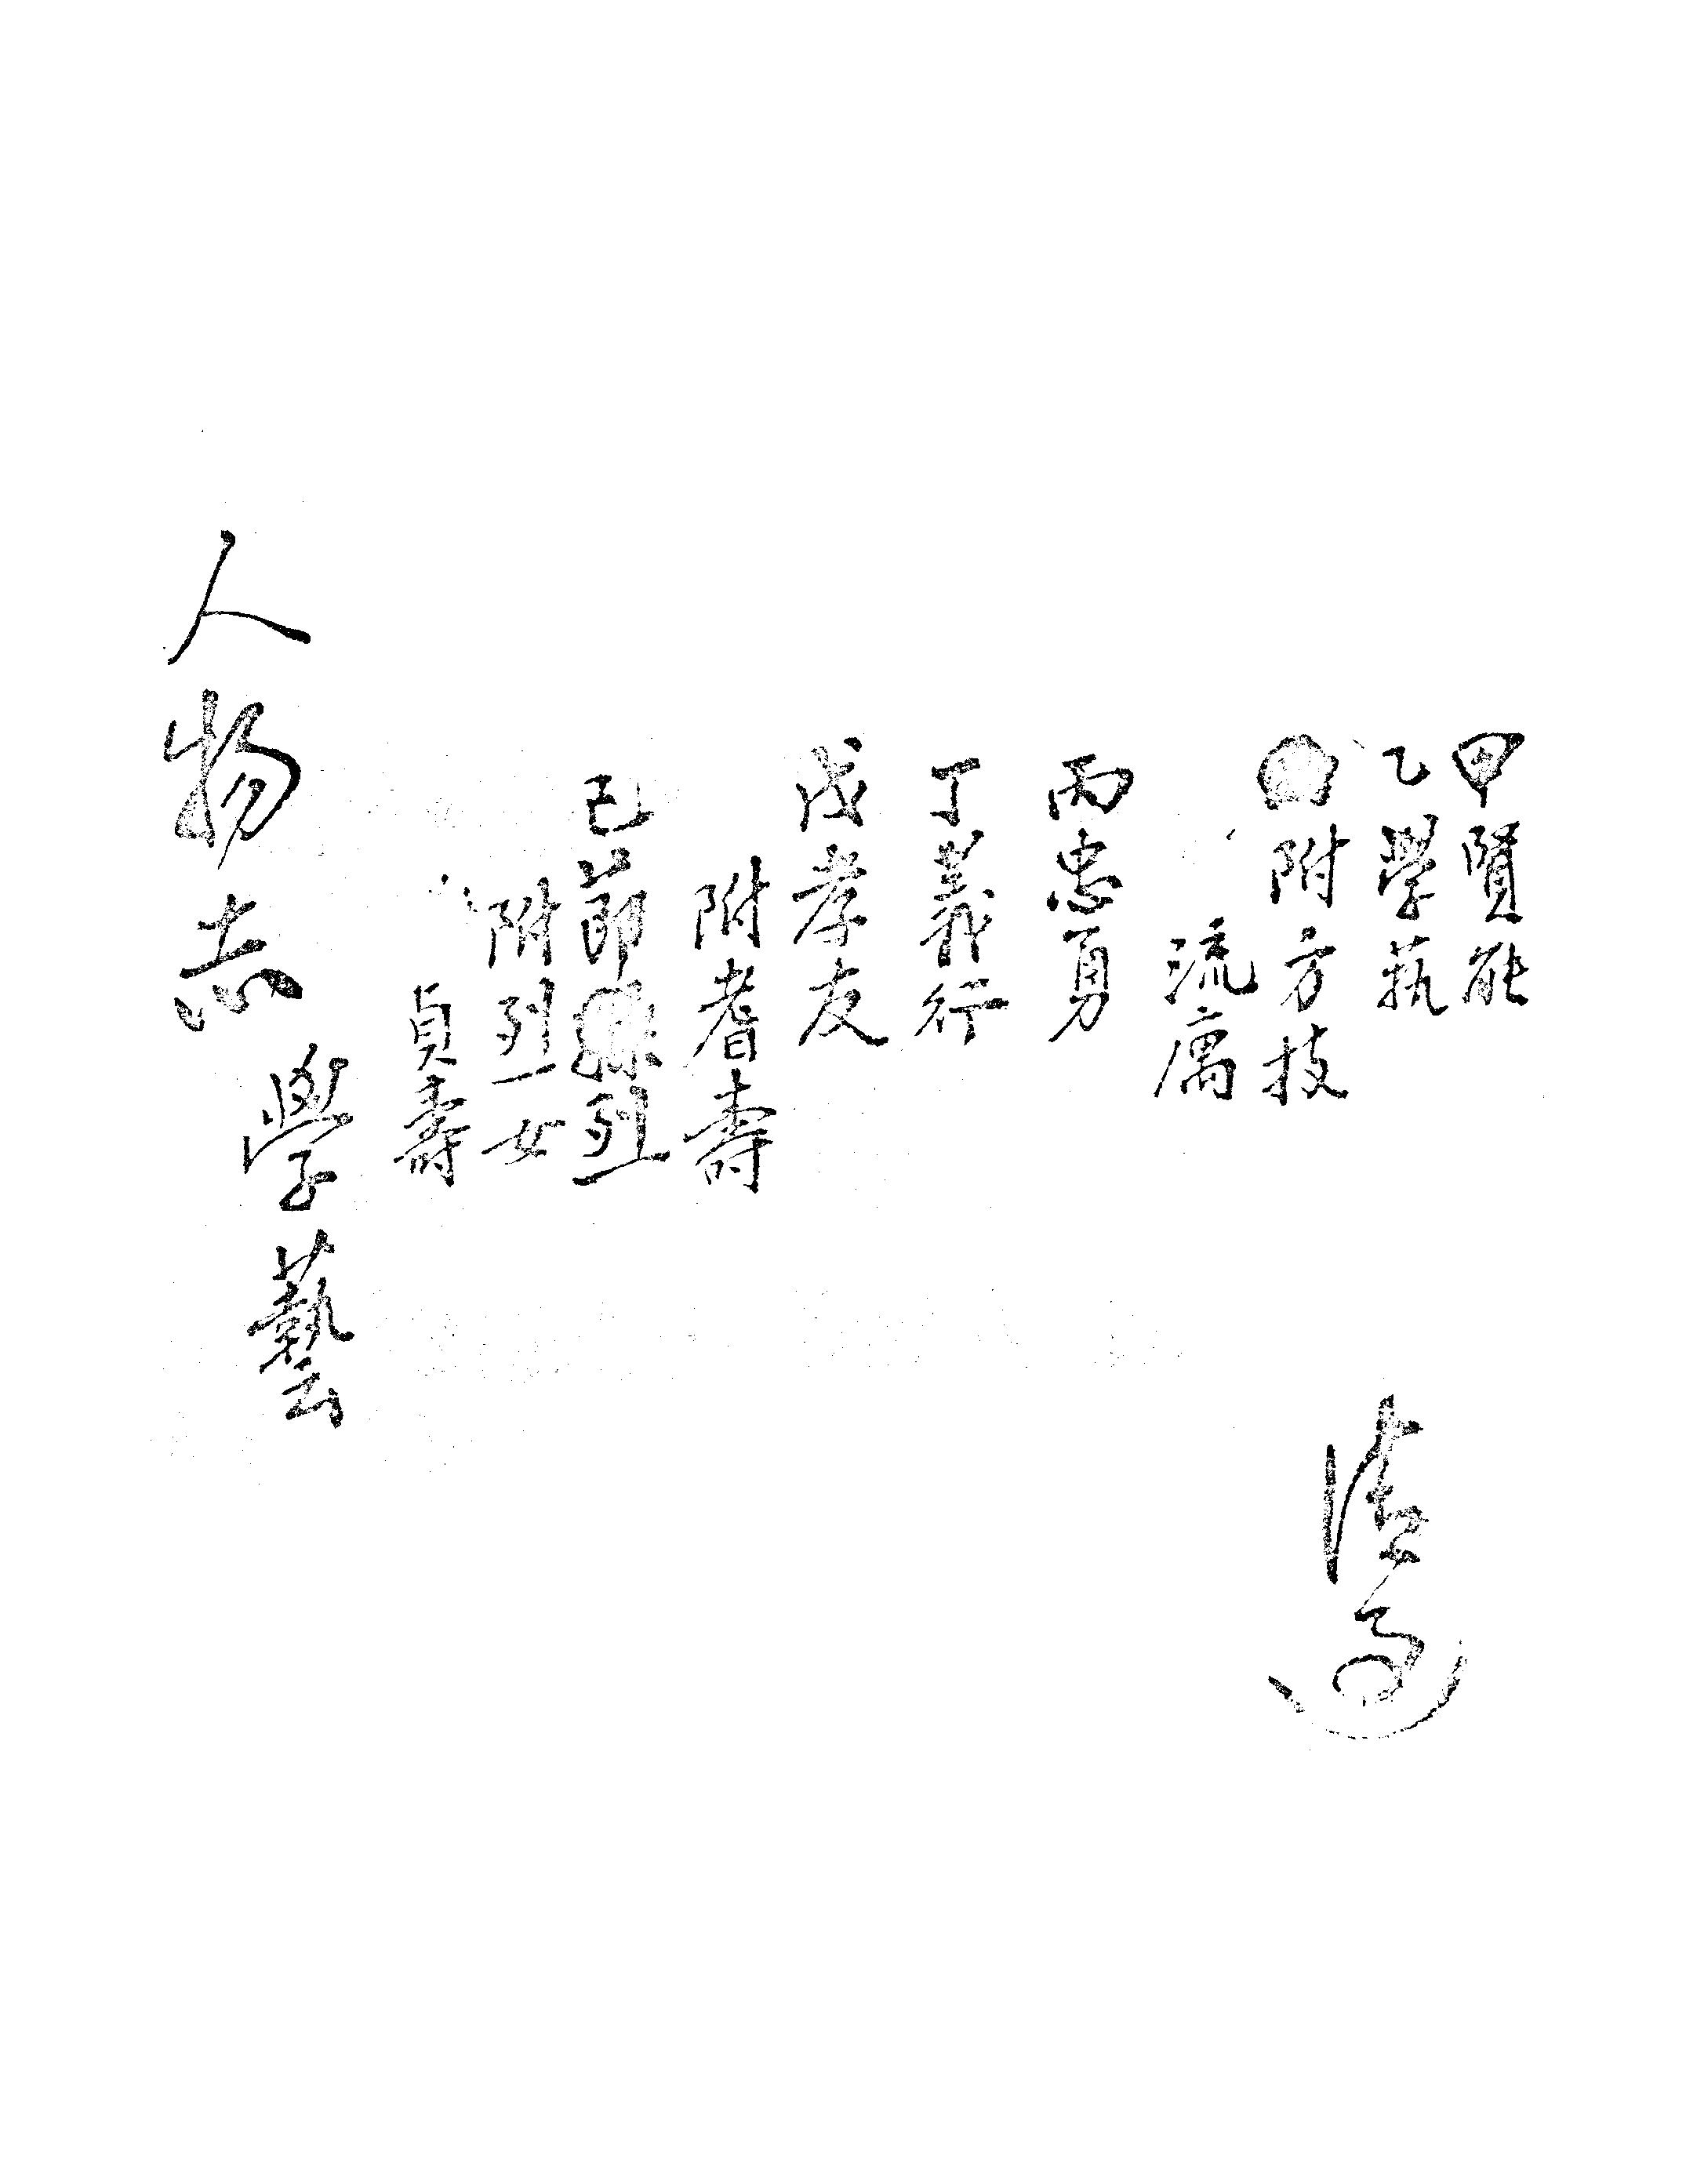 甲賢能
乙學藝
附方技
流寓
丙忠勇
丁義行
戊孝友
附耆壽
己節烈
附烈女
貞壽
人物志
學藝
清過